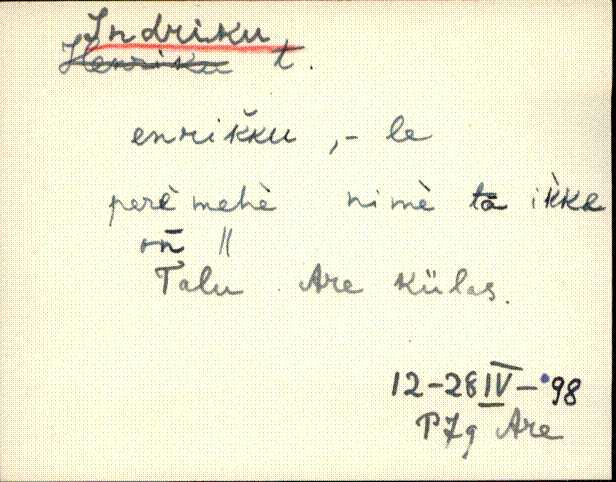 Indriku
Henriku t.
enrikku, -le
perè mehè nimè tä ikke
on̄ //
Talu Are külas.
12-28 IV - 98
PJg Are